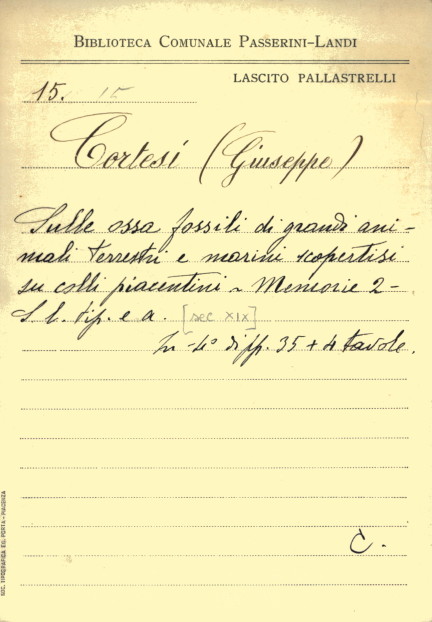 BIBLIOTECA COMUNALE PASSERINI-LANDI
LASCITO PALLASTRELLI
15. 15
Cortesi (Giuseppe)
Sulle ossa fossili di grandi ani-
mali terrestri e marini scopertisi
su colli piacentini ~ Memorie 2-
S. l. tip. e a. [sec XIX]
In -4° di pp. 35 + 4 tavole.
C.
SOC. TIPOGRAFICA ED. PORTA - PIACENZA